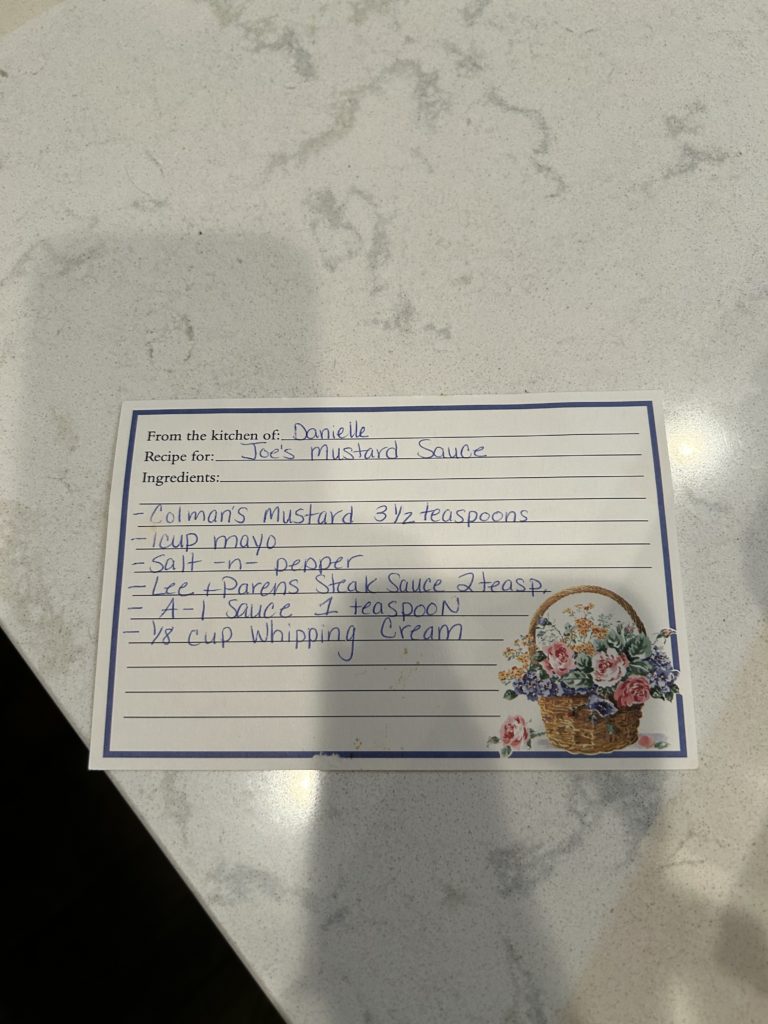 From the kitchen of: Danielle
Recipe for: Joe's Mustard Sauce
Ingredients:
- Colman's Mustard 3 1/2 teaspoons
- 1 cup mayo
- Salt -n- pepper
- Lee + Parens Steak Sauce 2 teasp.
- A-1 Sauce 1 teaspooN
- 1/8 cup Whipping Cream